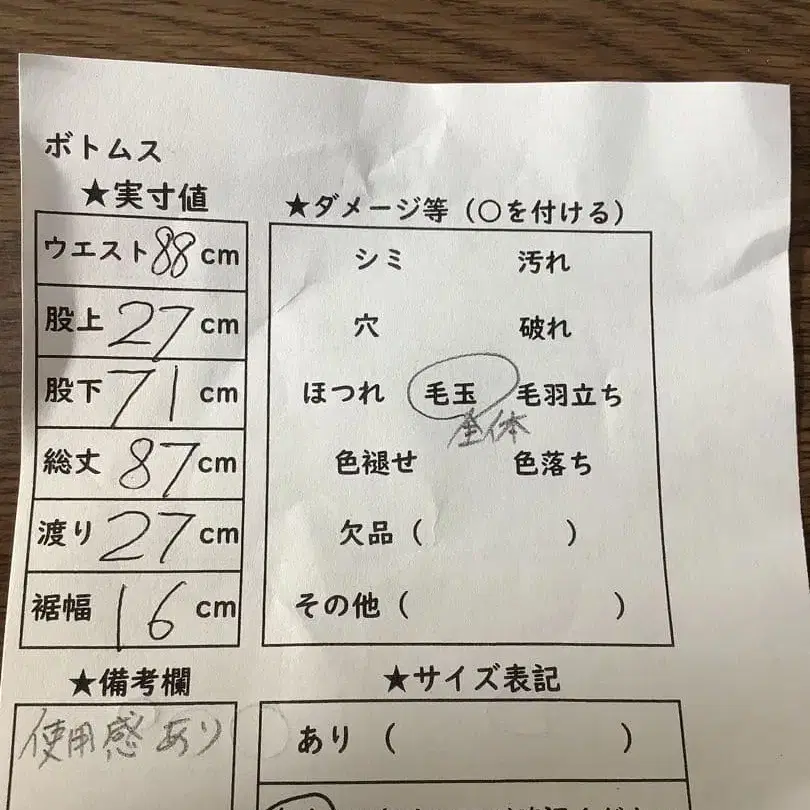 ボトムス
★実寸値
ウエスト 88 cm
股上 27 cm
股下 71 cm
総丈 87 cm
渡り 27 cm
裾幅 16 cm
★ダメージ等（○を付ける）
シミ 汚れ
穴 破れ
ほつれ 毛玉 毛羽立ち
全体
色褪せ 色落ち
欠品（ ）
その他（ ）
★備考欄
使用感あり
★サイズ表記
あり（ ）